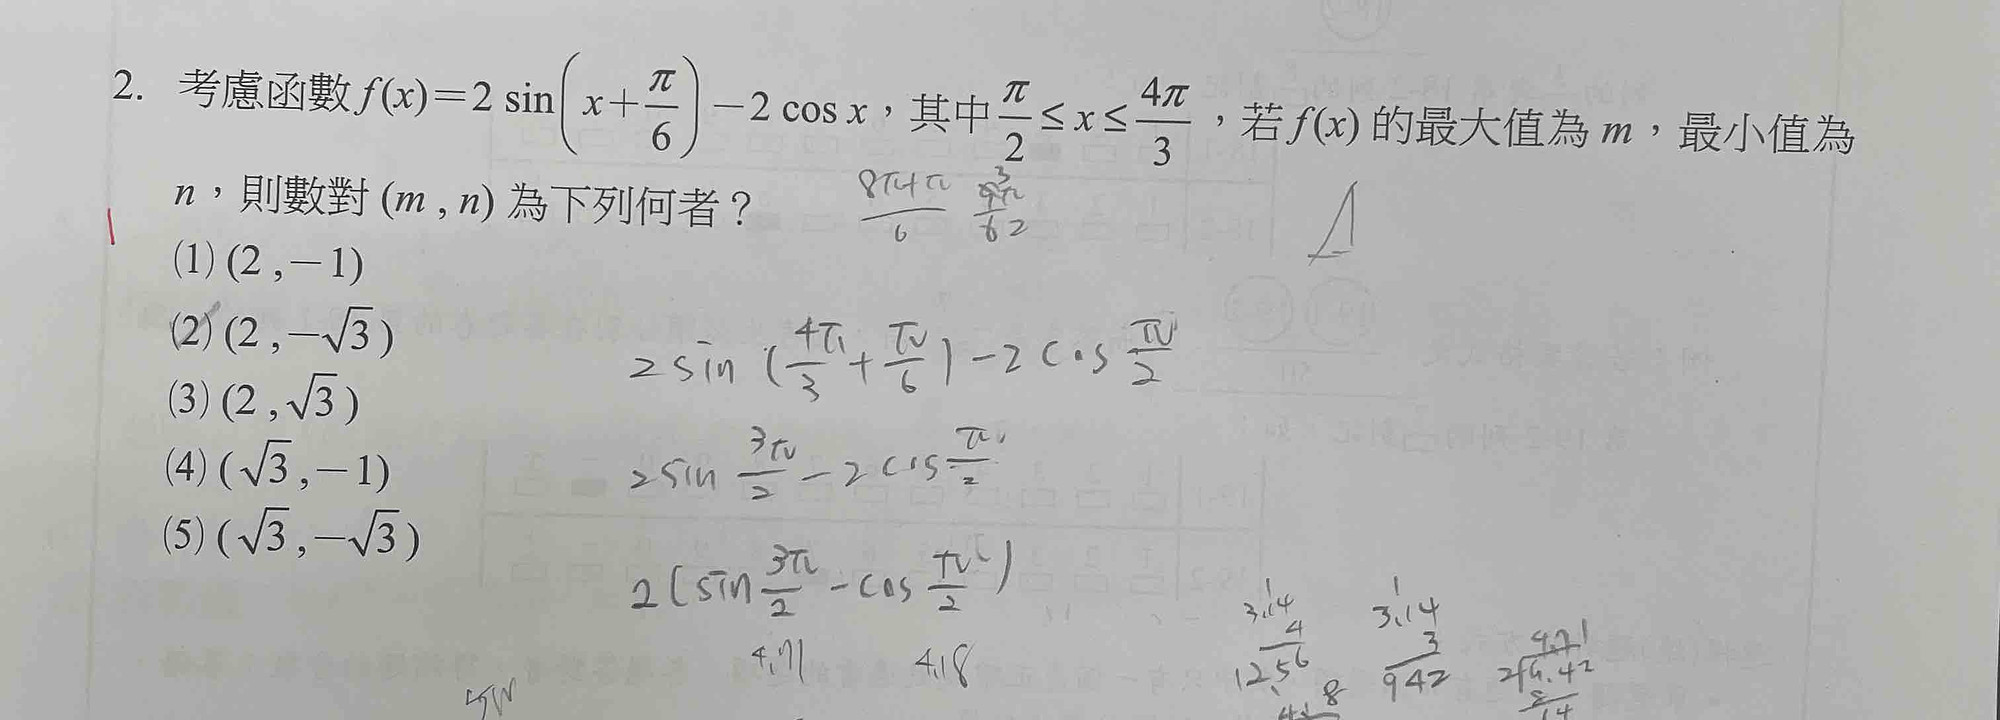 2. 考慮函數 f(x)=2 sin(x+π/6)−2 cos x，其中 π/2≤x≤4π/3，若 f(x) 的最大值為 m，最小值為
n，則數對 (m , n) 為下列何者？
(8π+π)/6 9π/6 3 2
(1) (2 , −1)
(2) (2 , −√3)
(3) (2 , √3)
(4) (√3 , −1)
(5) (√3 , −√3)
2 sin (4π/3 + π/6) − 2 cos π/2
2 sin 3π/2 − 2 cos π/2
2 (sin 3π/2 − cos π/2)
4.71 4.18
3.14 4 12.56
3.14 3 942